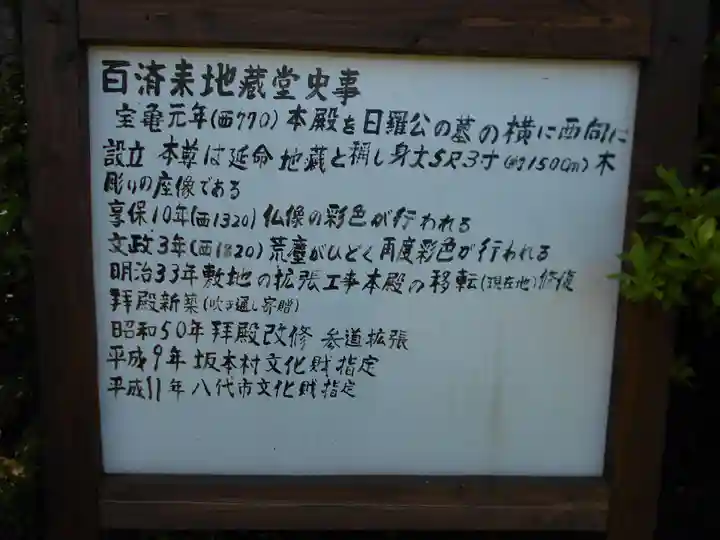 百済来地蔵堂史事
宝亀元年(西770)本殿を日羅公の墓の横に西向に
設立 本尊は延命地蔵と称し身丈5尺3寸(約150cm)木
彫りの座像である
享保10年(西1320)仏像の彩色が行われる
文政3年(西1820)荒塵がひどく再度彩色が行われる
明治33年敷地の拡張工事本殿の移転(現在地)修復
拝殿新築(吹き通し寄贈)
昭和50年拝殿改修 参道拡張
平成9年坂本村文化財指定
平成11年八代市文化財指定